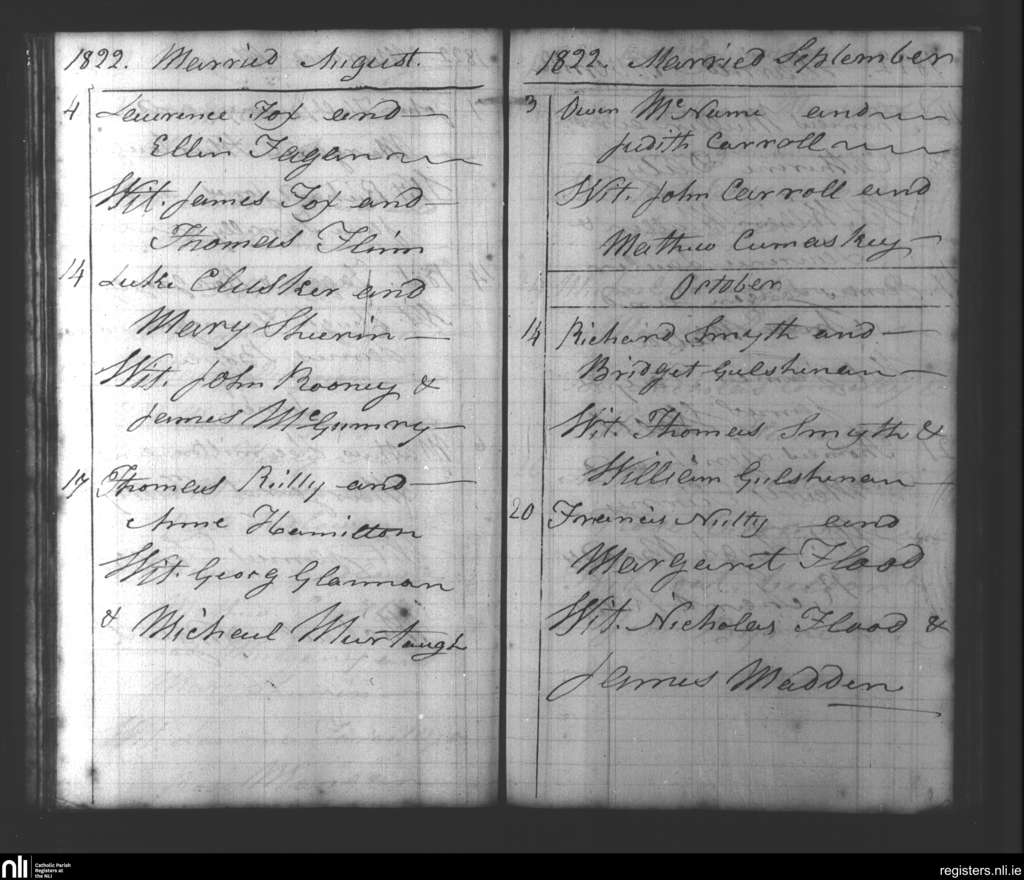 1822. Married August.
4 Lawrence Fox and
Ellin Fagan
Wit. James Fox and
Thomas Flinn
14 Luke Clusker and
Mary Sherin
Wit. John Rooney &
James McGumry
17 Thomas Rilly and
Anne Hamilton
Wit. Georg Glannan
& Michael Murtaugh
1822. Married September
3 Owen McName and
Judith Carroll
Wit. John Carroll and
Mathew Cumaskey
October
14 Richard Smyth and
Bridget Gulshinan
Wit. Thomas Smyth &
William Gulshinan
20 Francis Nulty and
Margaret Flood
Wit. Nicholas Flood &
James Madden
nli Catholic Parish
Registers at
the NLI
registers.nli.ie